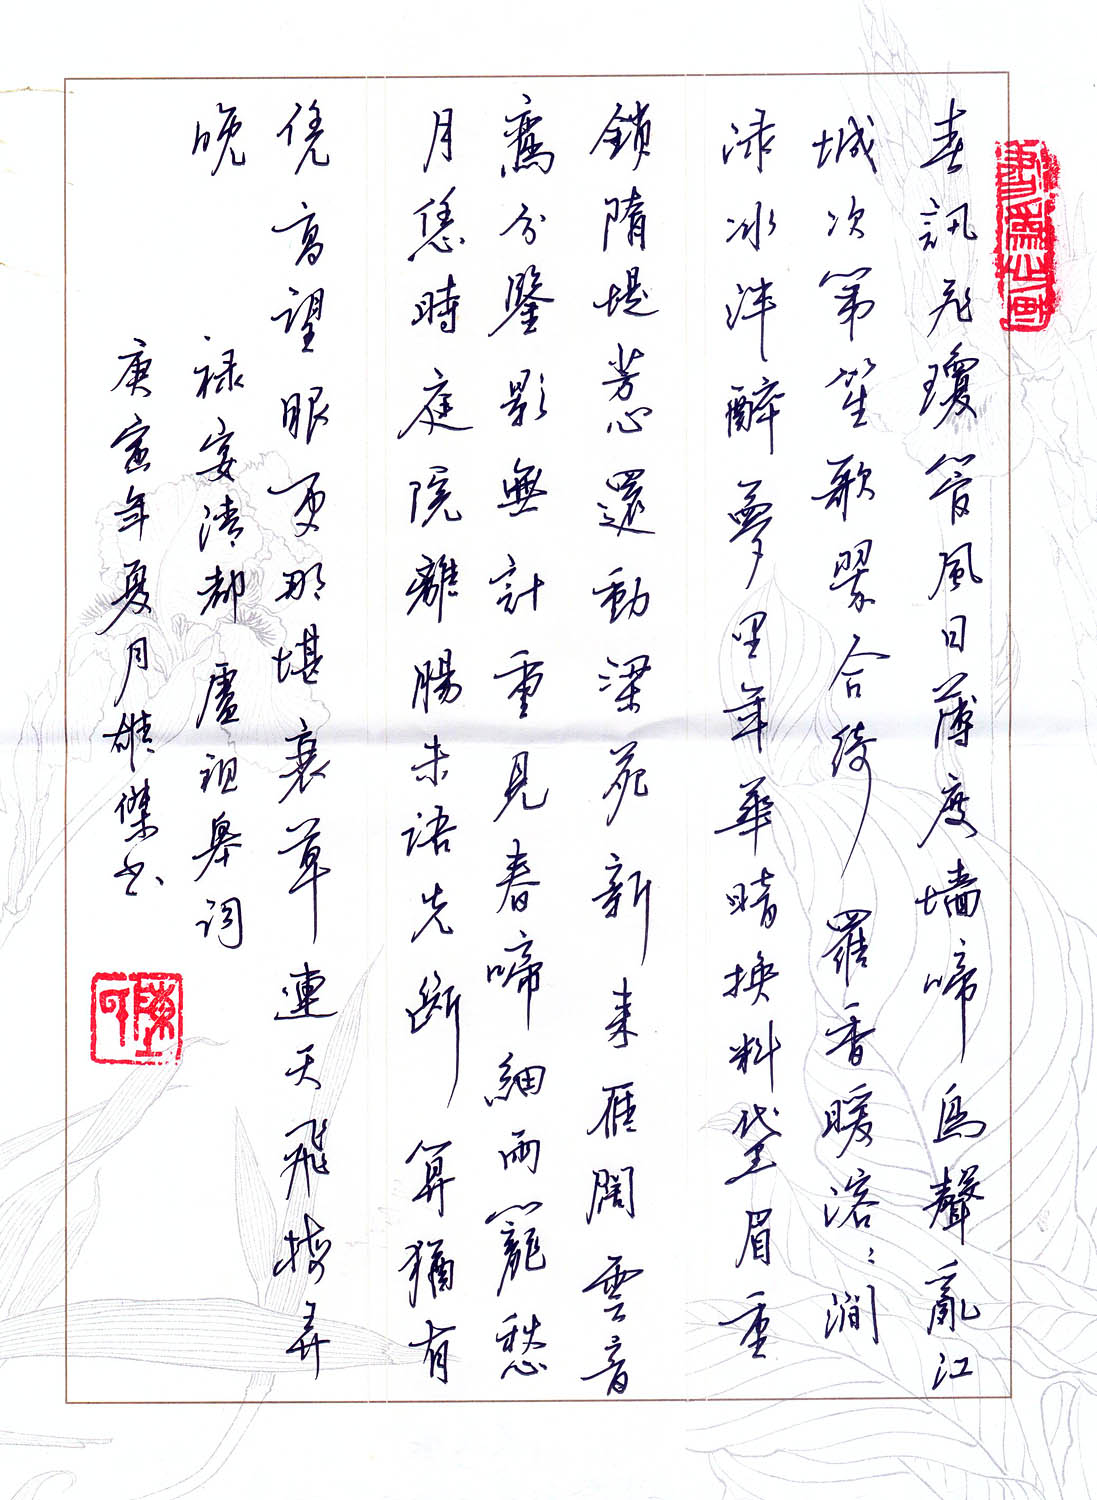 春訊飛瓊管風日薄度墻啼鳥聲亂江
城次第笙歌翠合綺羅香暖溶溶澗
渌冰泮醉夢里年華暗換料黛眉重
鎖隋堤芳心還動梁苑新来雁闊雲音
鸞分鑒影無計重見春啼細雨籠愁
月恁時庭院離腸未語先斷算猶有
凭高望眼更那堪衰草連天飛梅弄
晚
禄宴清都盧祖皋词
庚寅年夏月雄傑书